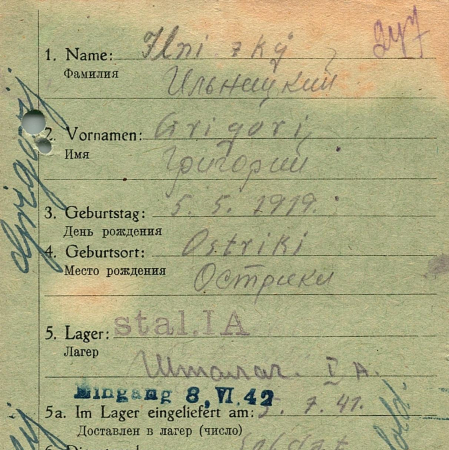 1. Name: Ilnizkÿ
Фамилия Ильницкий
2. Vornamen: Grigorij
Имя Григорий
3. Geburtstag: 5. 5. 1919.
День рождения
4. Geburtsort: Ostriki
Место рождения Острики
5. Lager: stal.IA
Лагер Шталаг. I A.
Eingang 8. VI. 42
5a. Im Lager eingeliefert am: 5. 7. 41.
Доставлен в лагер (число)
Grigorij